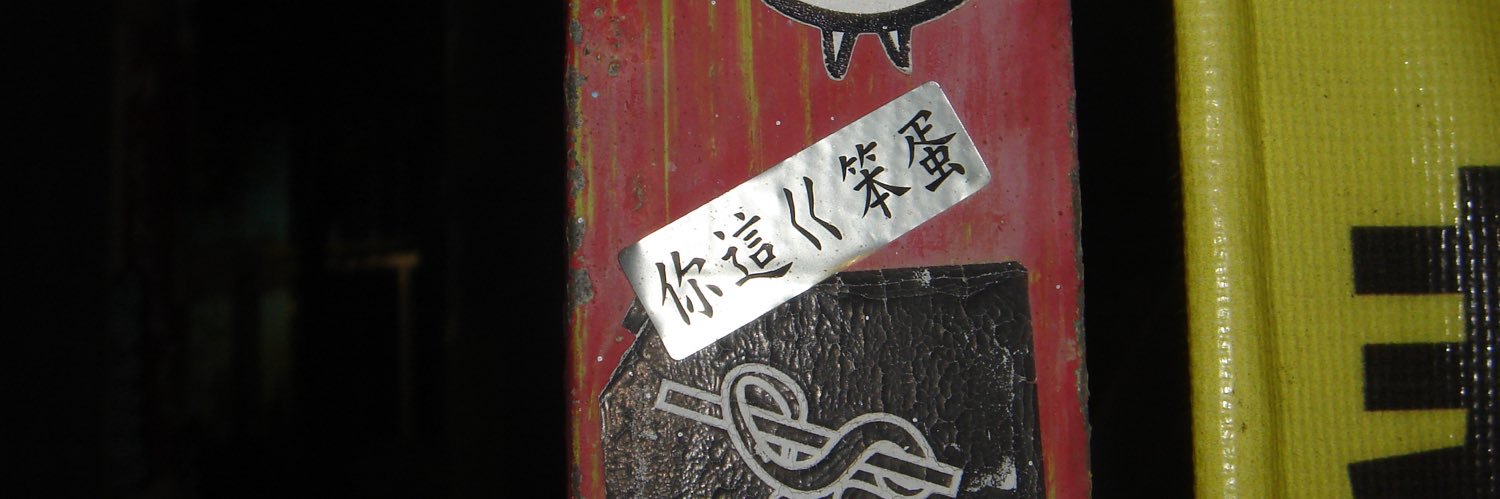 你這ㄍ笨蛋